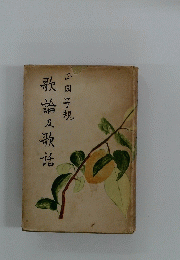 正岡子規
歌論及歌話